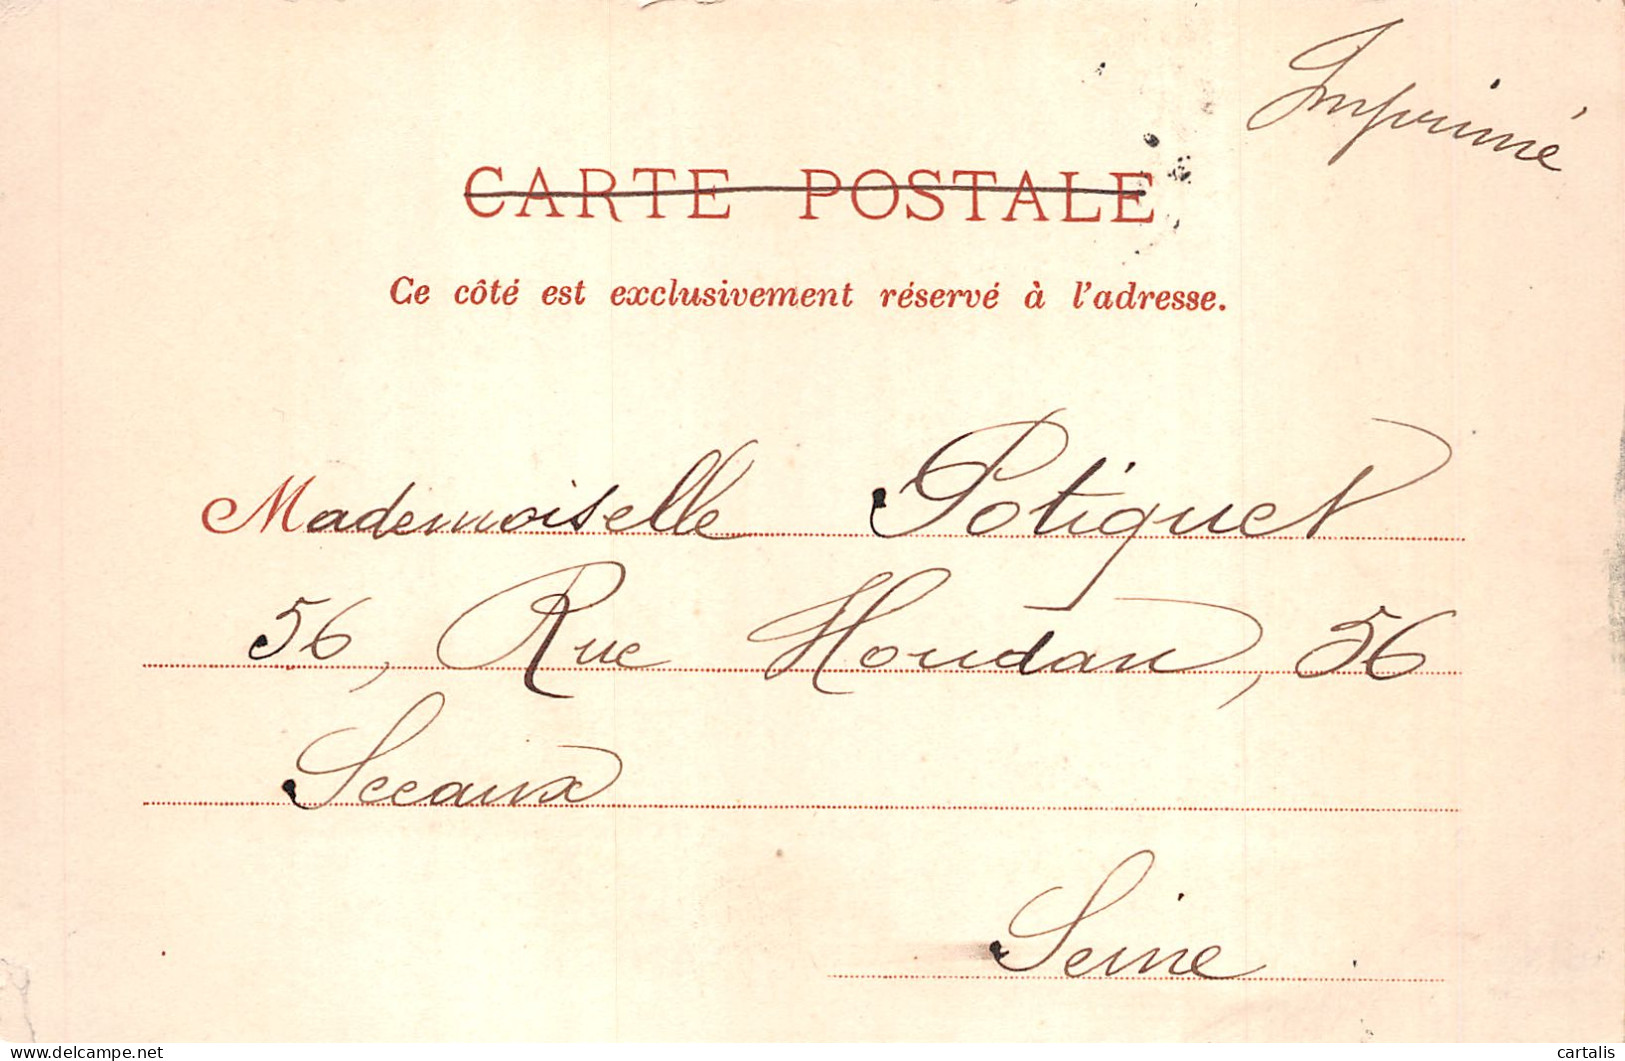 Imprimé
CARTE POSTALE
Ce côté est exclusivement réservé à l'adresse.
Mademoiselle Potiquet
56, Rue Houdan, 56
Sceaux
Seine
www.delcampe.net
cartalis